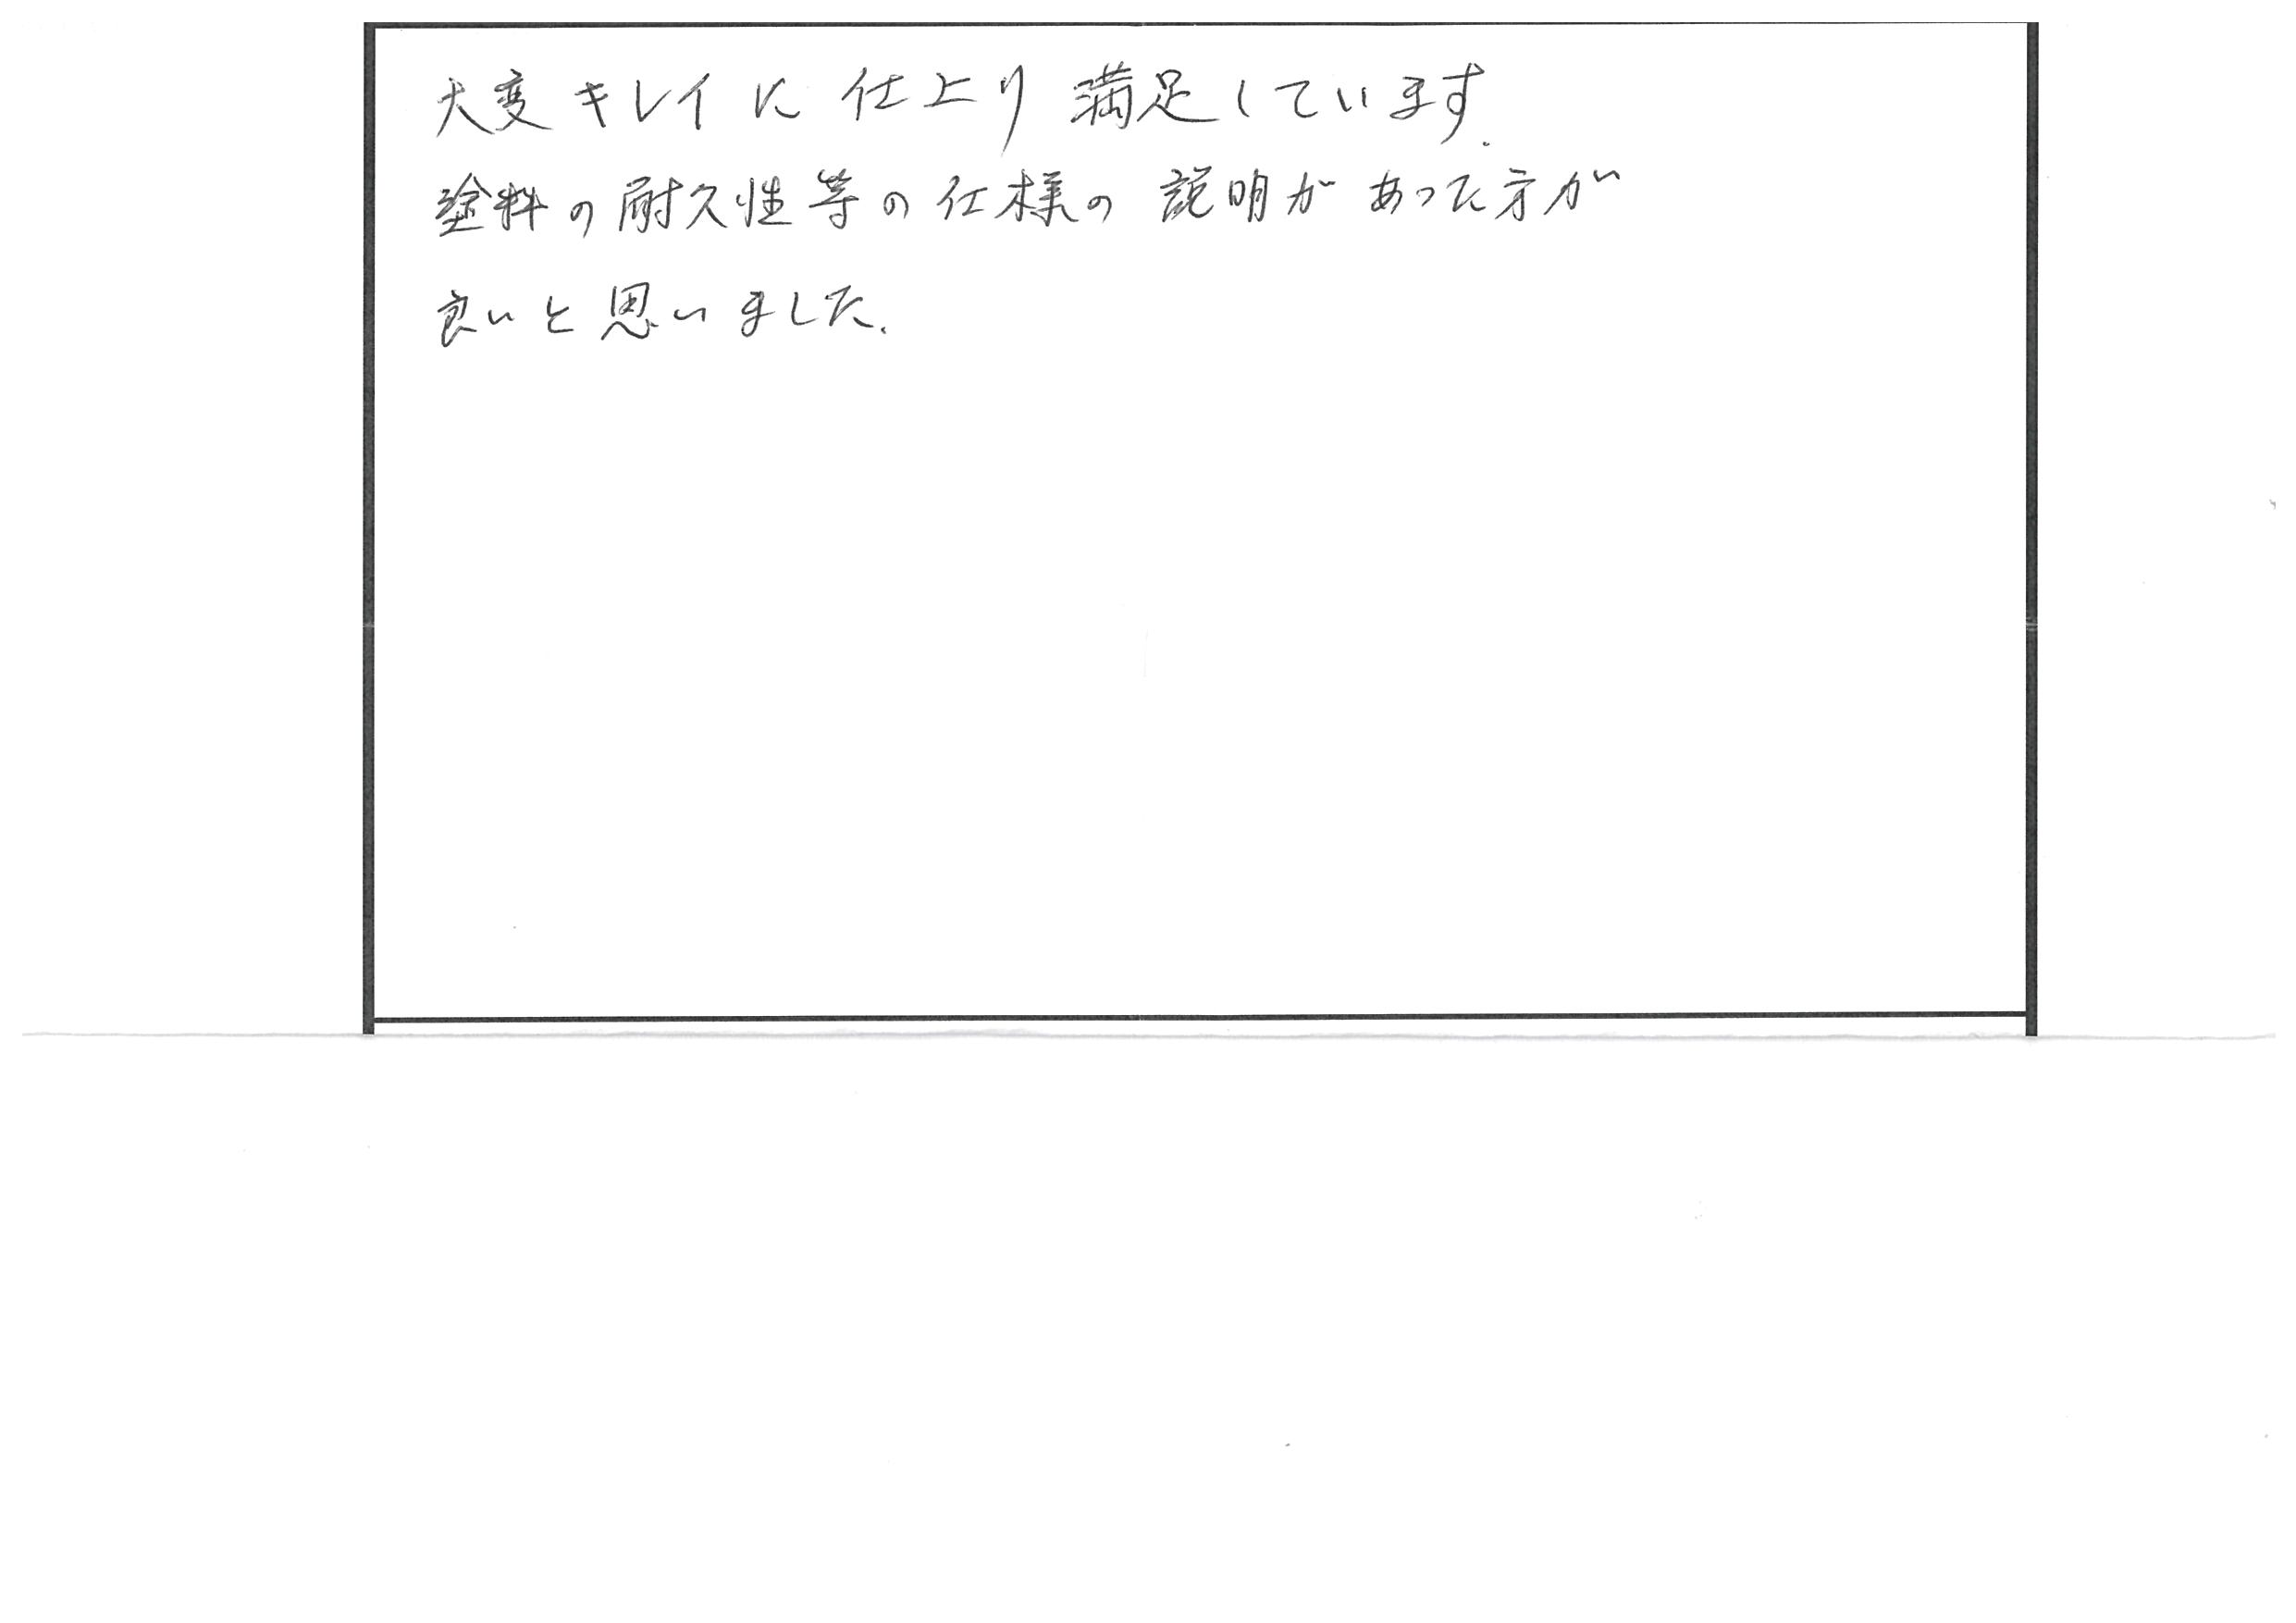 大変キレイに仕上り満足しています.
塗料の耐久性等の仕様の説明があった方が
良いと思いました.